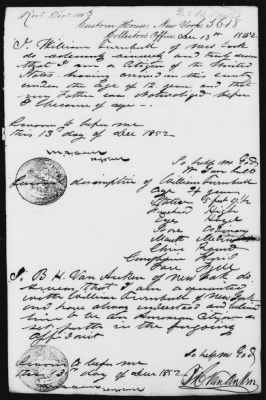 Custom House, New York
Collector's Office Dec 13th 1852
I William Turnbull of New York
do solemnly sincerely and truly swear
that I am a Citizen of the United
States having arrived in this country
under the age of 12 years, and that
my Father was Naturalized before
I became of age
Sworn to before me
this 13 day of Dec 1852
So help me God
Wm Turnbull
description of William Turnbull
Age 34 years
Stature 5 feet
Forehead High
Eyes Hazel
Nose Ordinary
Mouth
Chin Round
Complexion
Face
I B. H. Van Auken of New York do
swear, that I am acquainted
with William Turnbull of New York
and have always understood and believed
him to be an American Citizen as
set forth in the foregoing
Affidavit
Sworn to before me
this 13th day of Dec 1852
So help me God
B H Van Auken